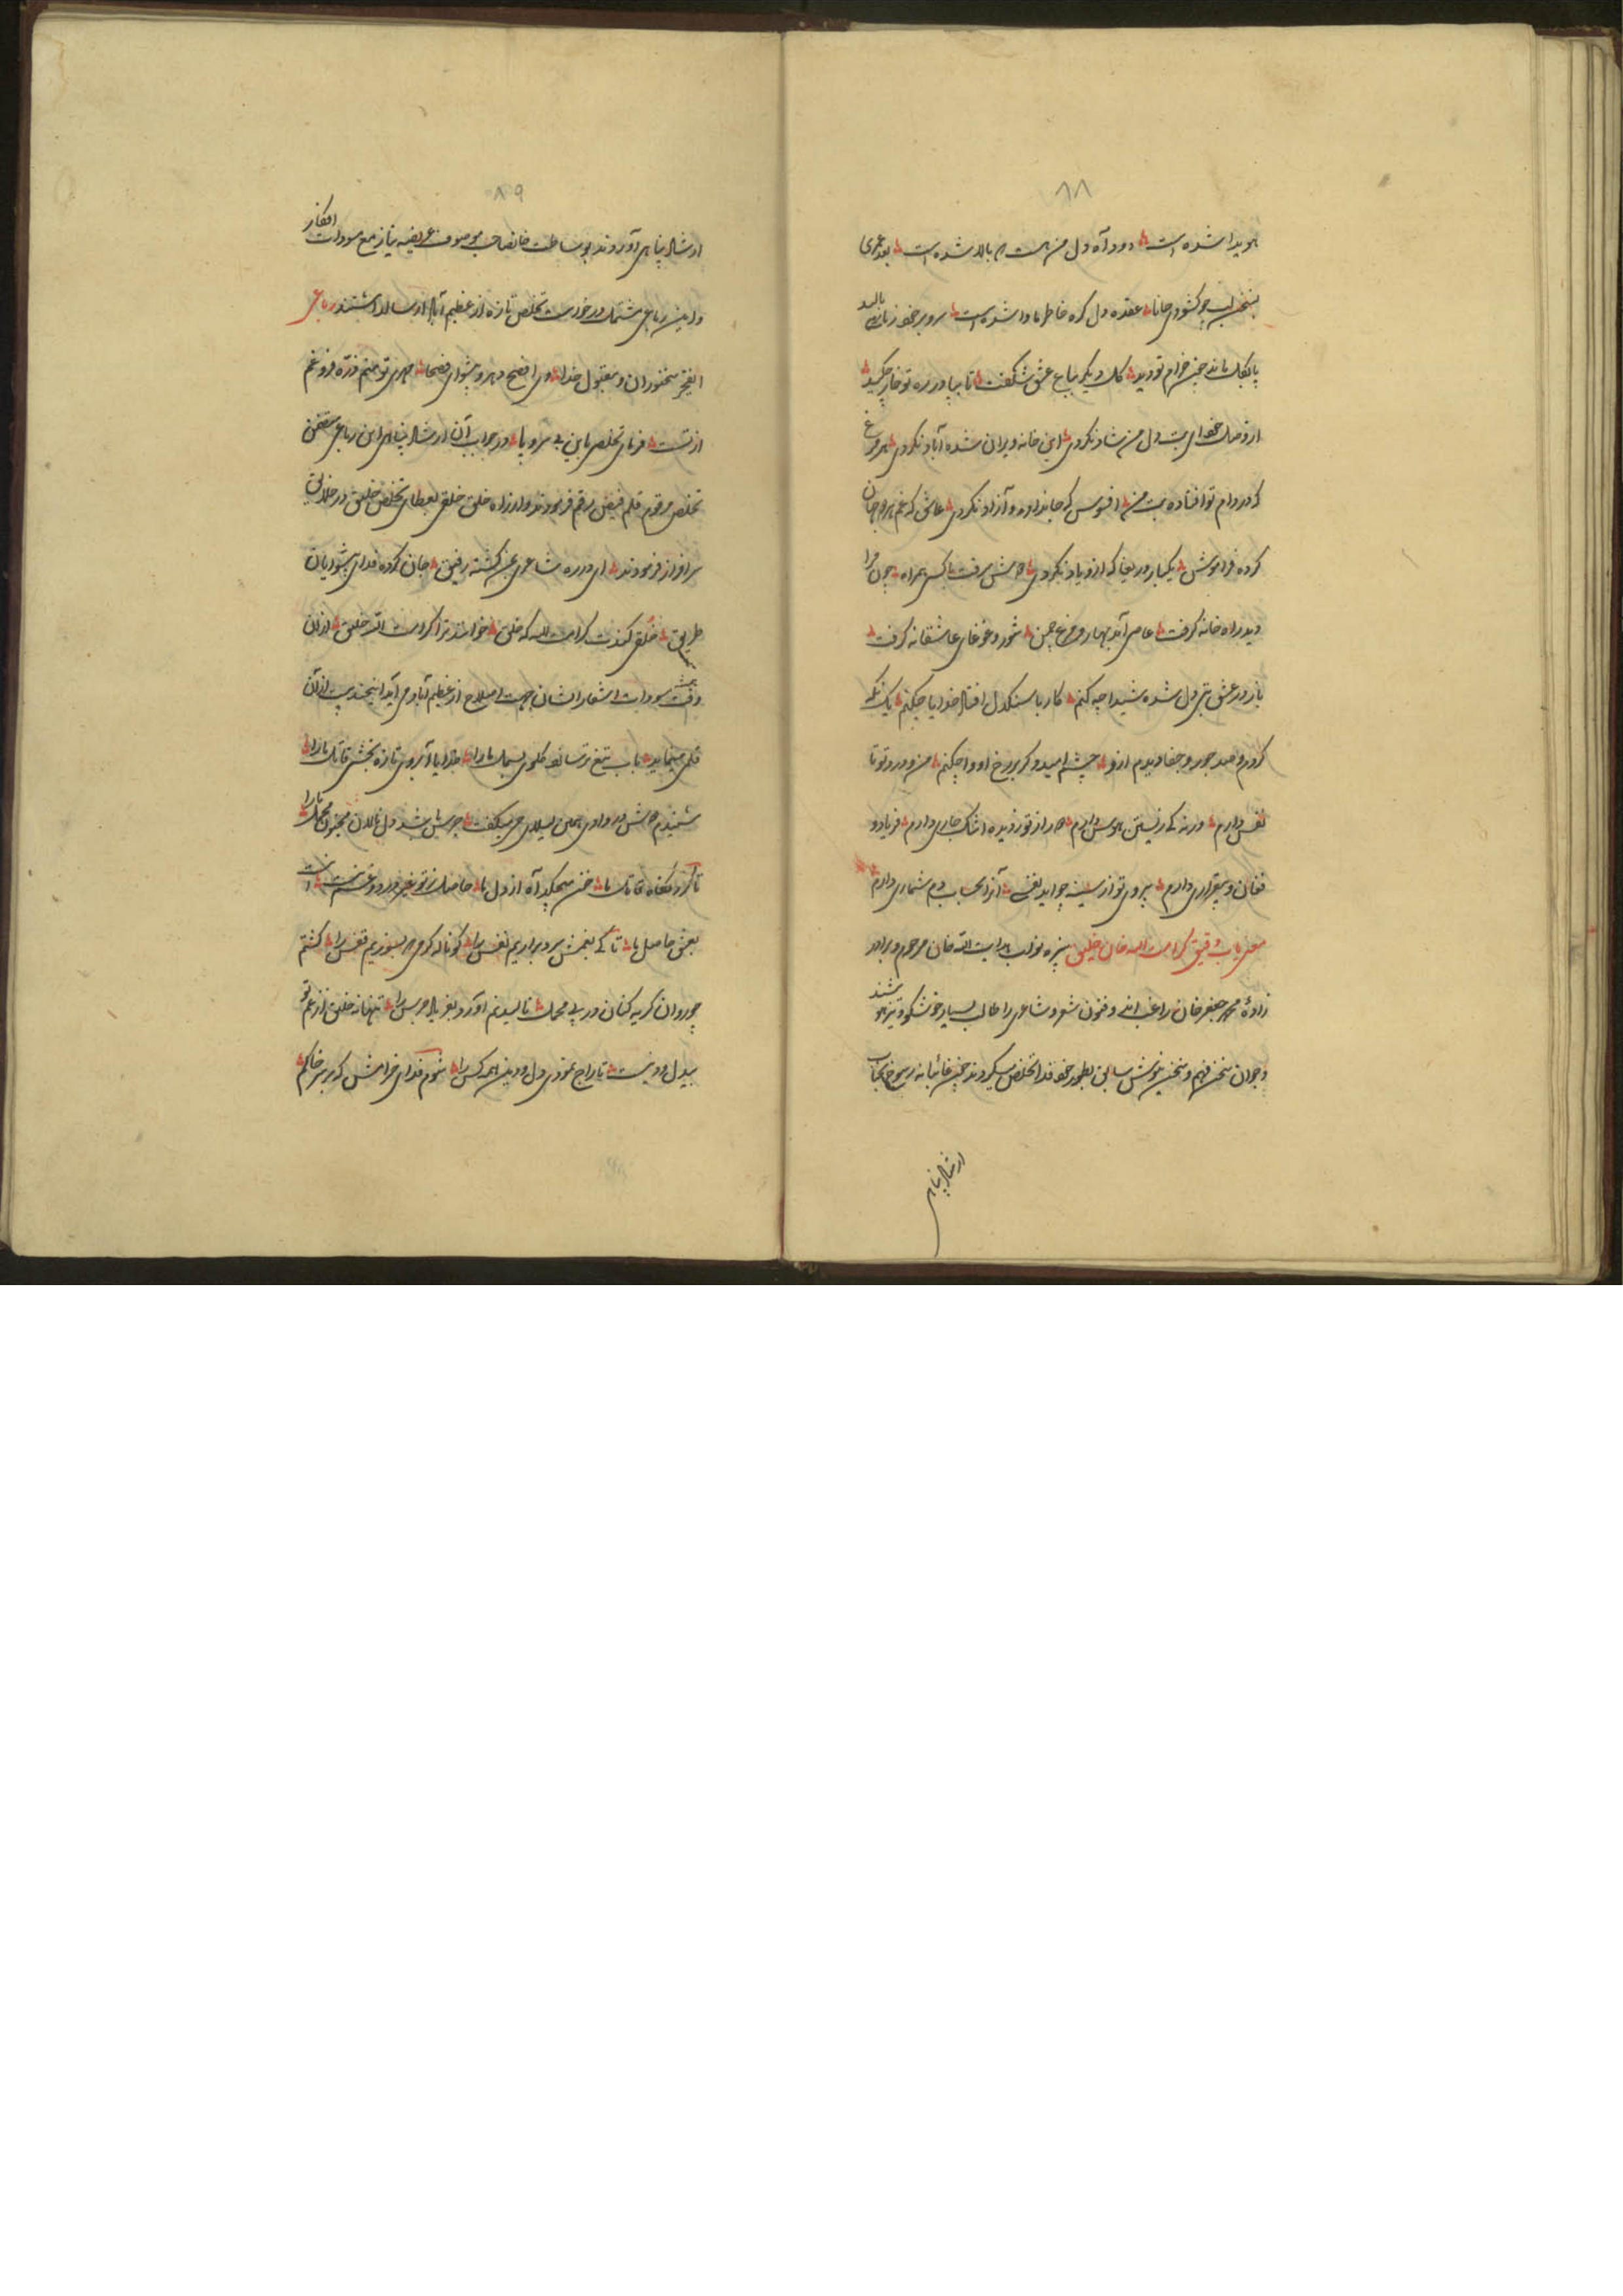 ۸۸
هویدا شده است دود آه دل من است که بالا شده است بعد عمری
بسخن لب چو کشودی جانا عقده دل گره خاطر ما وا شده است سرو بر خود
پا بگل ماند چون خرام تو دید گل دیگر بباغ عشق شکفت تا بپا در ره تو خار
از وصل خود ای بت دل من شاد نکردی این خانه ویران شده آباد نکردی هر مرغ
که در دام تو افتاده افسوس که جان داد و آزاد نکردی که غم هر دو جهان
کرده فراموش یکبار دریغا که ازو یاد نکردی همراه چون مرا
دید راه خانه گرفت آمد بهار و مرغ چمن شور و غوغای عاشقانه گرفت
باز در عشق بتی دل شده شیدا چه کنم کار با سنگدل افتاد خدایا چکنم یک نگه
کردم و صد جور و جفا دیدم ازو چشم امید و گر بر رخ او وا چکنم من و درد تو تا
نفس دارم ورنه کی زیستن هوس دارم دور از تو ز دیده اشک جاری دارم فریاد و
فغان و بیقراری دارم بی روی تو از سینه چو آید نفسی آنرا بحساب دم شماری دارم
معنی یاب دقیق کرامت الله خان خلیق نبیره نواب هدایت الله خان مرحوم و برادر
زاده محمد جعفر خان راغب اند و فنون شعر و شاعری را طالب بسیار خوشگو و تیز هوشند
و جوان سخن فهم و سخن نیوش سابق بطور خود فدا تخلص میکردند چون غائبانه رجوع بجناب
ارشاد پناهی
۸۹
ارشاد پناهی آوردند بوساطت خانصاحب موصوف عریضه نیاز مع مسودات افکار
و این رباعی مشتمل درخواست تخلص تازه از عظیم آباد ارسال داشتند رباعی
ای فخر سخنوران و مقبول خدا وی افصح دهر و پیشوای فصحا مهری تو منم ذره فروغم
از تست فرمای تخلصی باین بی سر و پا در جواب آن ارشاد پناهی این رباعی متضمن
تخلص مرقوم قلم فیض رقم فرمودند و از راه خلق خلقی بعطای تخلص خلیق در خلایق
سرافراز فرمودند ای در ره شاعری بمن گشته رفیق جان کرده فدای پیشوایان
طریق خلق کندت کرامت الله که خلق خوانند ترا کرامت الله خلیق ازان
وقت مسودات اشعار ایشان بجهت اصلاح از عظیم آباد می آید این چند بیت از آن
قلمی مینماید بآب تیغ تر سازد گلوی بسمل ما را خدایا آبروی تازه بخشی قاتل ما را
شنیدم در وادی لیلی میگفت جرس شد دل نالان مجنون محمل ما را
تا کرد نگاه قاتل ما خون میچکد آه از دل ما حاصل ز تو غیر درد و غم نیست
بعشق حاصل ما تا کی بغمش سرد برآریم نفس را کو ناله گرمی که بسوزیم قفس را گشتم
چو روان گریه کنان در پی محمل نالیدنم آورد بفریاد جرس را تنها نه خلیق از غم تو
بیدل و دینست تاراج نمودی دل و دین همه کس را شوم فدای خرامش که بر سر خاکم